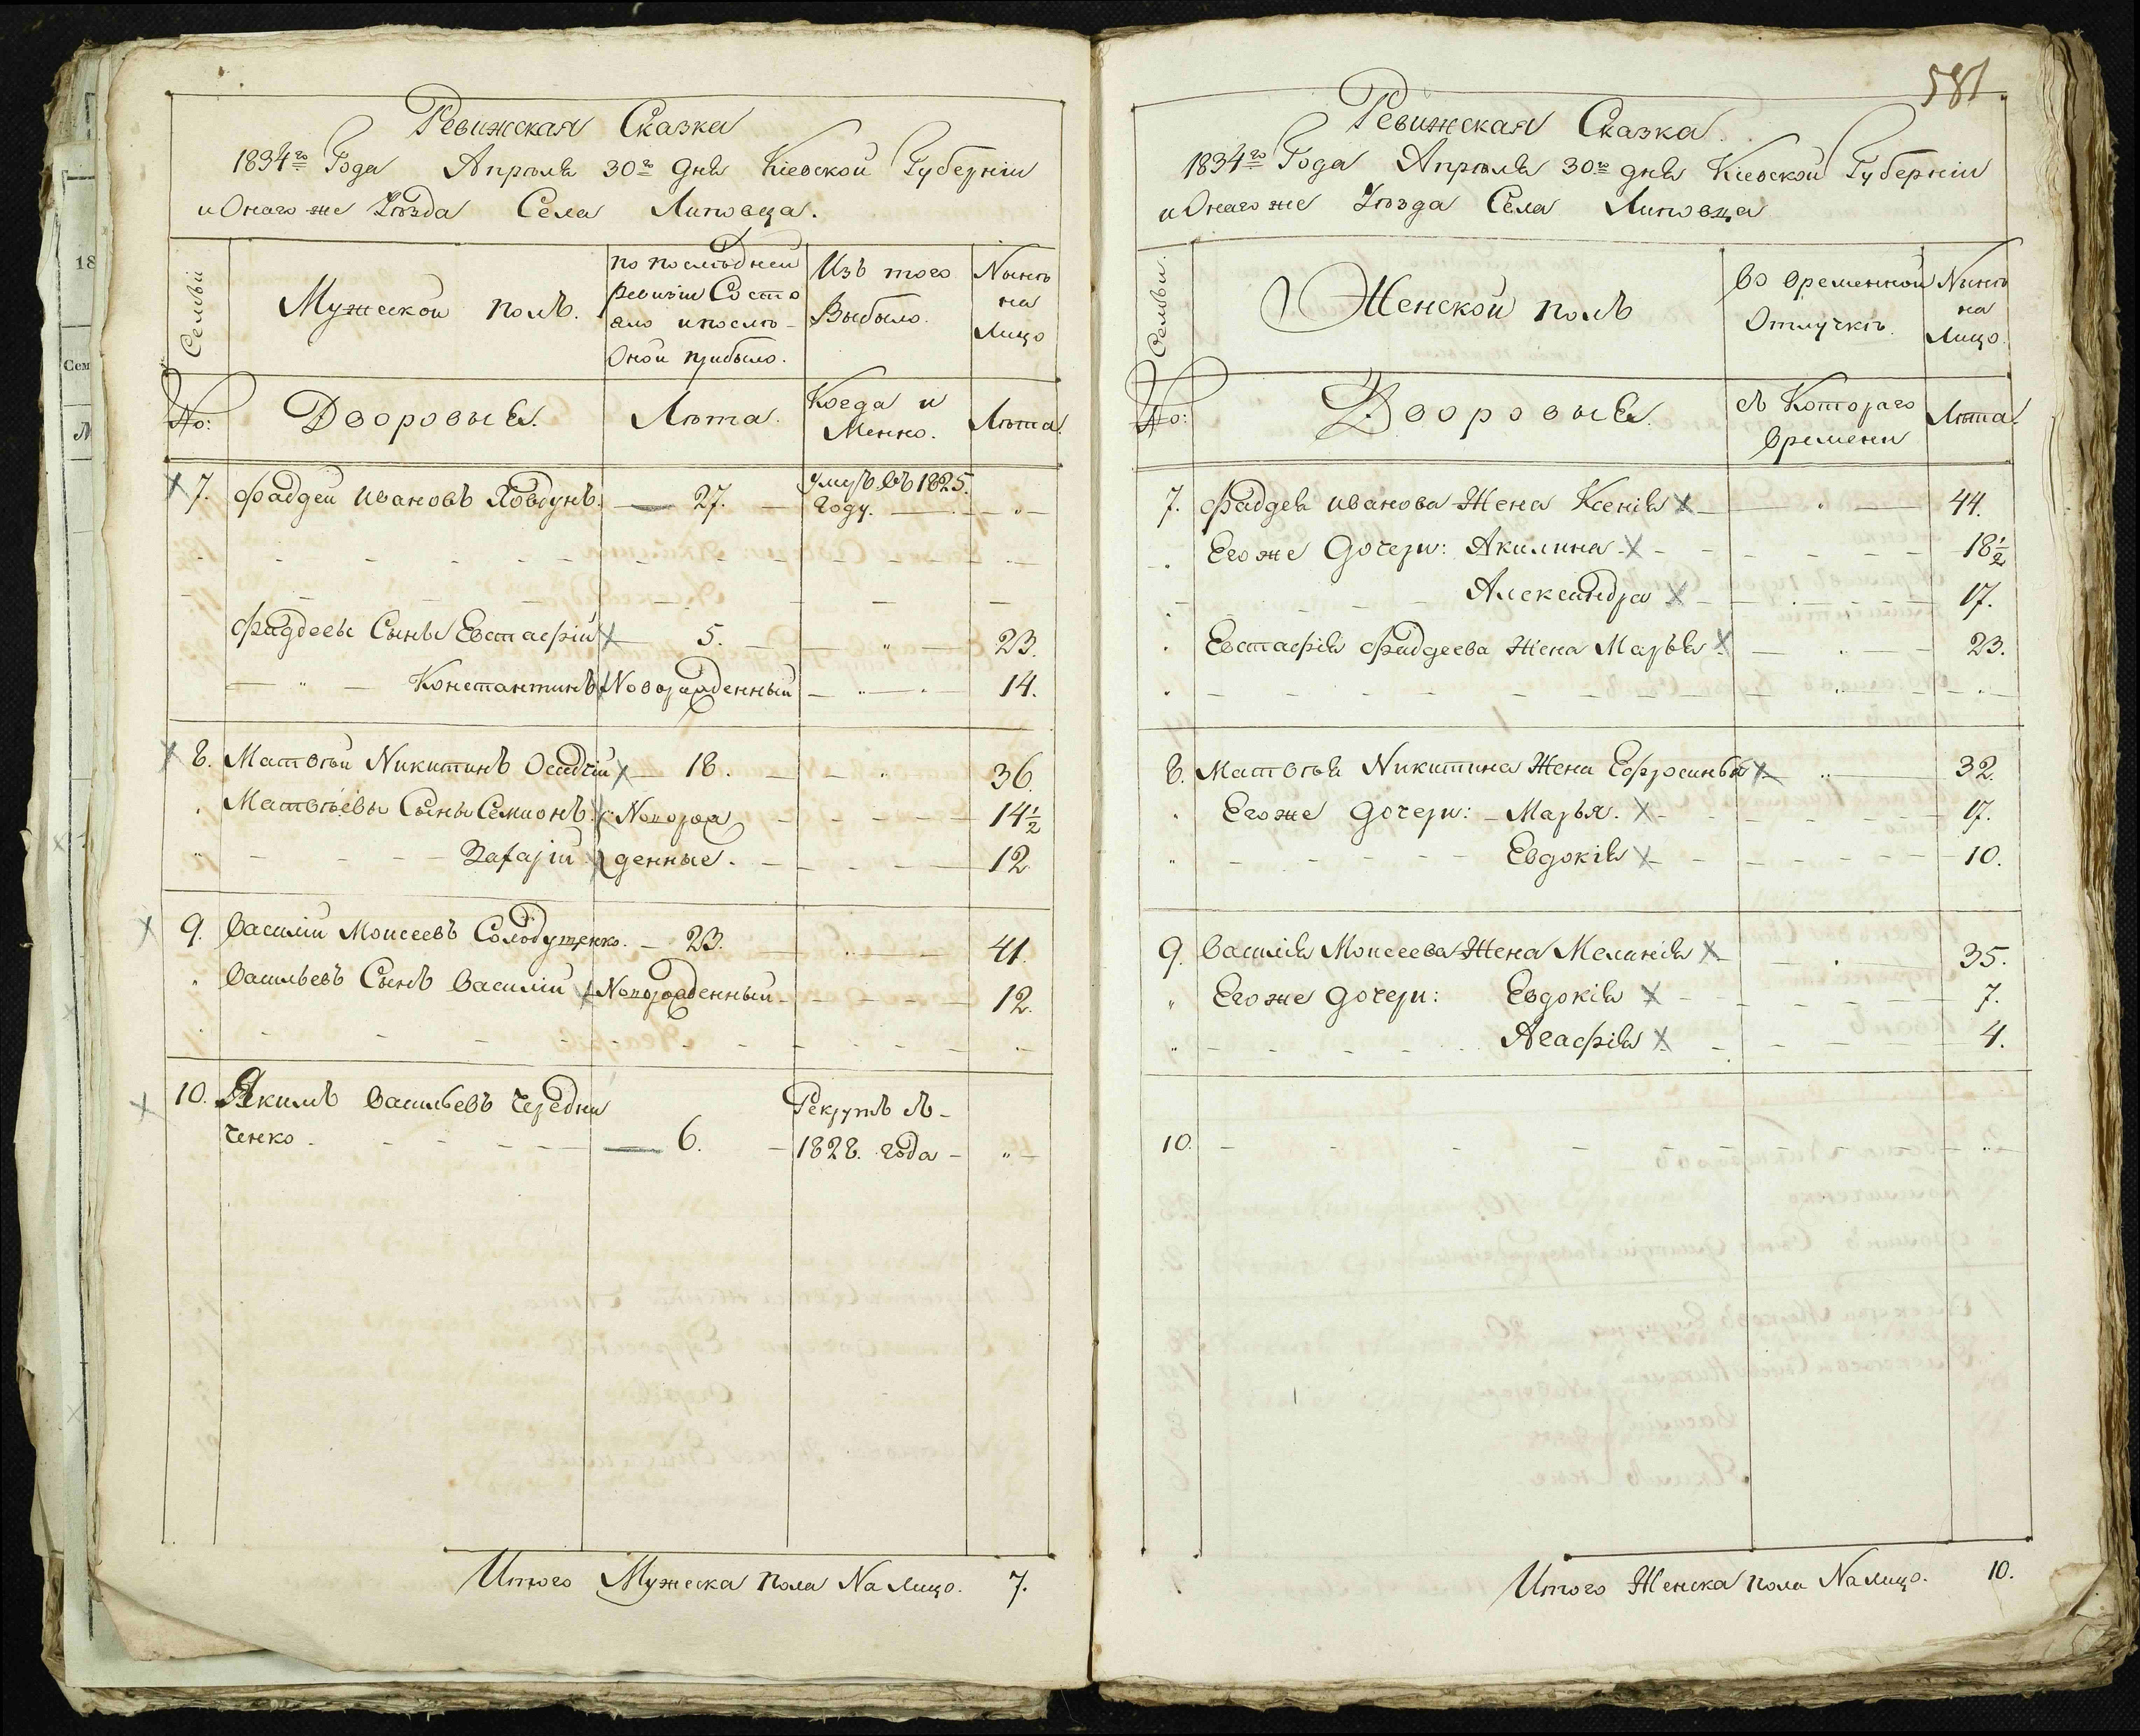 Ревижская Сказка
1834го Года Апрѣля 30го дня Кіевской Губерніи
и Онаго же Уѣзда Села Липовца.
Семьи
Мужеской полъ.
по послѣдней
ревизіи Состо
яло и послѣ
Оной прибыло.
Изъ того
Выбыло.
Нынѣ
на
Лицо
No:
Дворовые.
Лѣта.
Когда и
Менно.
Лѣта.
7. Фаддей Ивановъ Яовдунъ. 27. умръ въ 1825.
году.
Фаддеевы Сынъ Евстафій 5. 23.
Константинъ Новорожденный 14.
8. Матвѣй Никитинъ Осадчій 18. 36.
Матвѣевы Сыны Семионъ Новорож 14 1/2
Захарій денные. 12
9. Василій Моисеевъ Солодутенко. 23. 41.
Васильевъ Сынъ Василій Новорожденный 12.
10. Якимъ Васильевъ Чередни Рекрутъ съ
ченко 6. 1828. года
Итого Мужеска пола На лицо. 7.
581
Ревижская Сказка.
1834го Года Апрѣля 30го дня Кіевской Губерніи
и Онаго же Уѣзда Села Липовца
Семьи.
Женской полъ
Во временной
Отлучкѣ.
Нынѣ
на
Лицо.
No:
Дворовые.
съ Котораго
Времени
Лѣта.
7. Фаддея Иванова Жена Ксенія 44.
Его же Дочери: Акилина 18 1/2
Александра 17.
Евстафія Фаддеева Жена Марья 23.
8. Матвѣя Никитина Жена Ефросинья 32.
Его же Дочери: Марья. 17.
Евдокія 10.
9. Василія Моисеева Жена Меланія 35.
Его же Дочери: Евдокія 7.
Агафія 4.
10.
Итого Женска пола На лицо. 10.